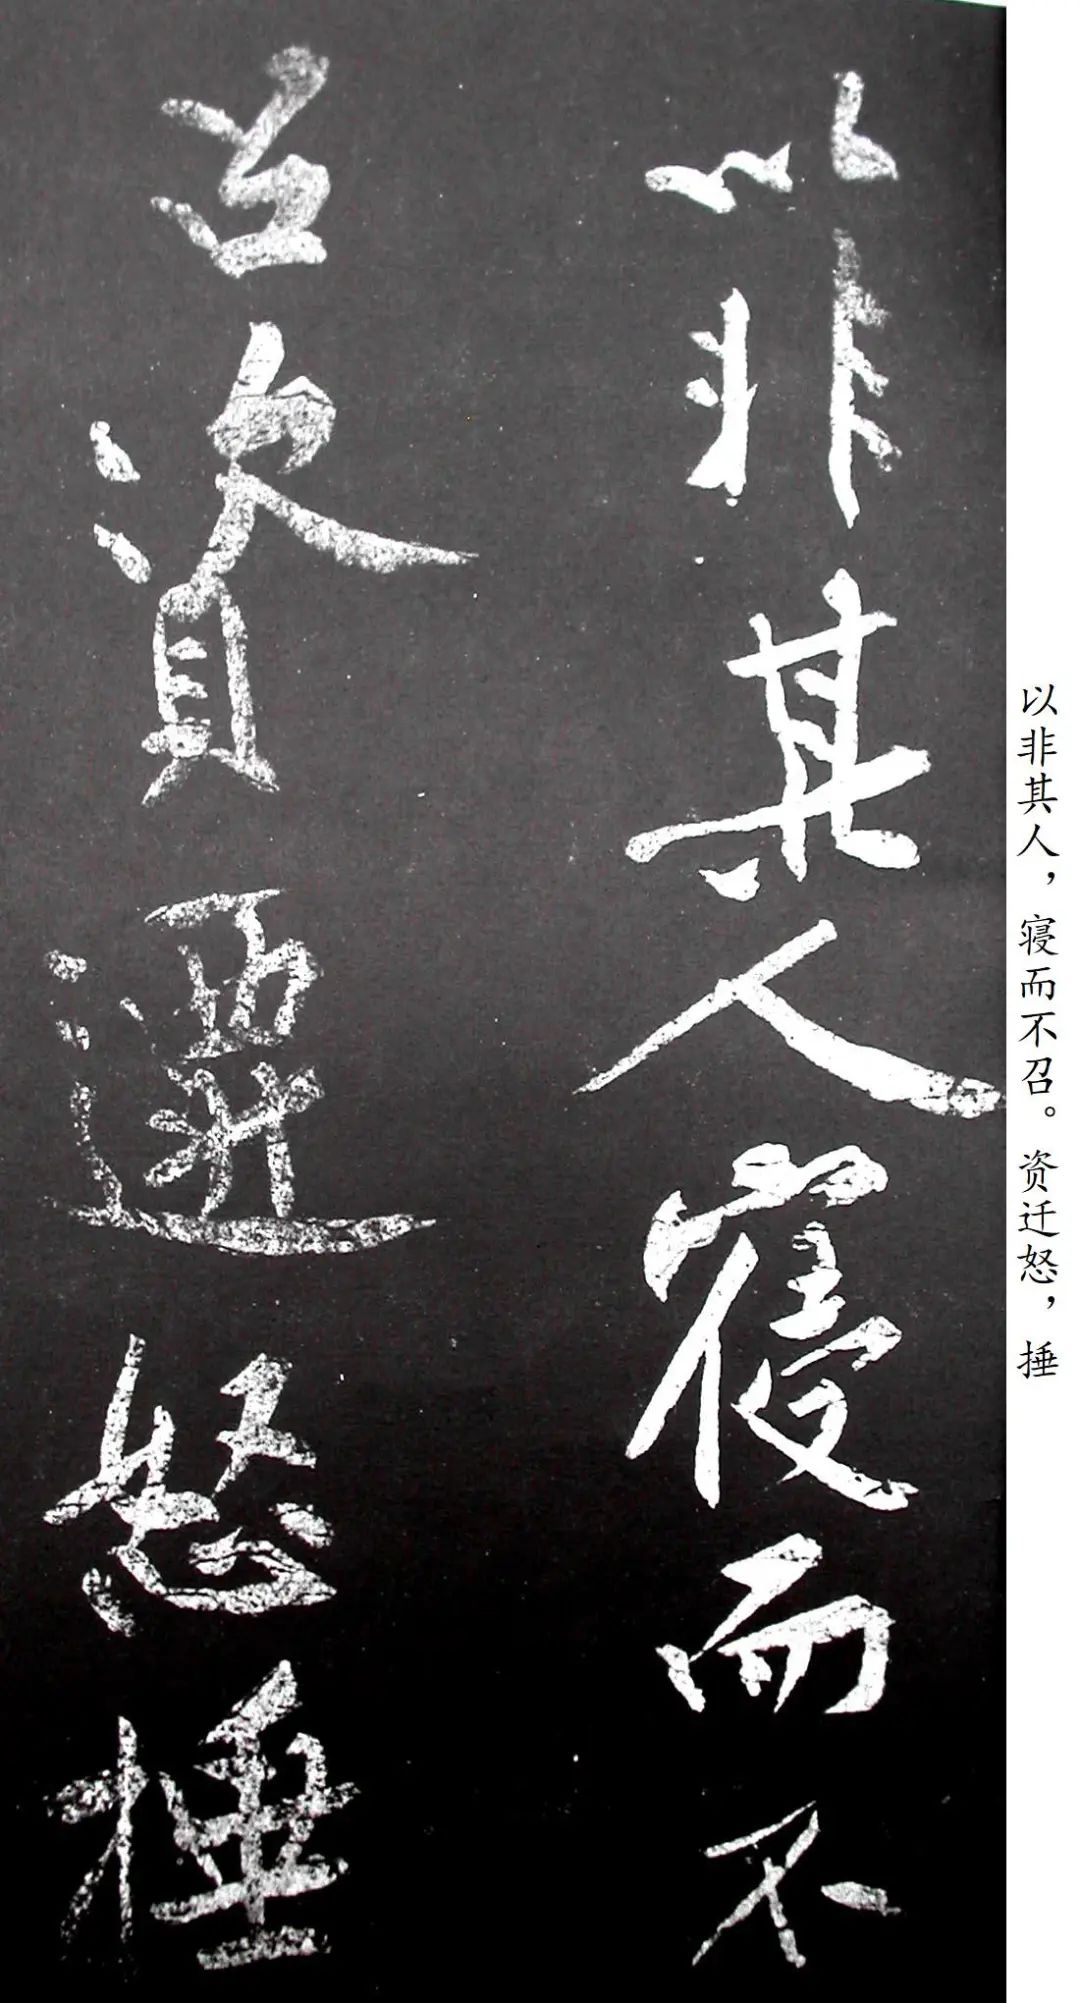 以非其人寝而不
召資遷怒捶
以非其人，寝而不召。资迁怒，捶